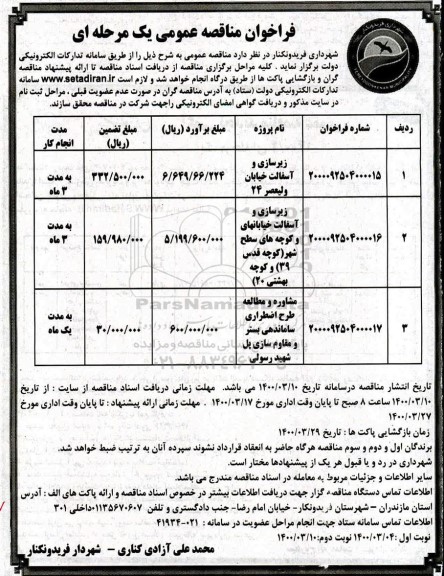 فراخوان مناقصه عمومی یک مرحله ای
شهرداری فریدونکنار در نظر دارد مناقصه عمومی به شرح ذیل را از طریق سامانه تدارکات الکترونیکی
دولت برگزار نماید . کلیه مراحل برگزاری مناقصه از دریافت اسناد مناقصه تا ارائه پیشنهاد مناقصه
گران و بازگشایی پاکت ها از طریق درگاه انجام خواهد شد و لازم است www.setadiran.ir سامانه
تدارکات الکترونیکی دولت (ستاد) به آدرس مناقصه گران در صورت عدم عضویت قبلی ، مراحل ثبت نام
در سایت مذکور و دریافت گواهی امضای الکترونیکی راجهت شرکت در مناقصه محقق سازند.
ردیف شماره فراخوان نام پروژه مبلغ برآورد (ریال) مبلغ تضمین (ریال) مدت انجام کار
۱ ۲۰۰۰۰۹۲۵۰۴۰۰۰۰۱۵ زیرسازی و آسفالت خیابان ولیعصر ۲۴ ۶/۶۴۹/۶۶/۲۲۴ ۳۳۲/۵۰۰/۰۰۰ به مدت ۳ ماه
۲ ۲۰۰۰۰۹۲۵۰۴۰۰۰۰۱۶ زیرسازی و آسفالت خیابانهای و کوچه های سطح شهر(کوچه قدس ۳۹) و کوچه بهشتی ۲۰) ۵/۱۹۹/۶۰۰/۰۰۰ ۱۵۹/۹۸۰/۰۰۰ به مدت ۳ ماه
۳ ۲۰۰۰۰۹۲۵۰۴۰۰۰۰۱۷ مشاوره و مطالعه طرح اضطراری ساماندهی بستر و مقاوم سازی پل شهید رسولی ۶۰۰/۰۰۰/۰۰۰ ۳۰/۰۰۰/۰۰۰ به مدت یک ماه
تاریخ انتشار مناقصه درسامانه تاریخ ۱۴۰۰/۰۳/۱۰ می باشد. مهلت زمانی دریافت اسناد مناقصه از سایت : از تاریخ
۱۴۰۰/۰۳/۱۰ ساعت ۸ صبح تا پایان وقت اداری مورخ ۱۴۰۰/۰۳/۱۷ . مهلت زمانی ارائه پیشنهاد : تا پایان وقت اداری مورخ
۱۴۰۰/۰۳/۲۷
زمان بازگشایی پاکت ها : تاریخ ۱۴۰۰/۰۳/۲۹
برندگان اول و دوم و سوم مناقصه هرگاه حاضر به انعقاد قرارداد نشوند سپرده آنان به ترتیب ضبط خواهد شد.
شهرداری در رد و یا قبول هر یک از پیشنهادها مختار است.
سایر اطلاعات و جزئیات مربوط به معامله در اسناد مناقصه مندرج می باشد.
اطلاعات تماس دستگاه مناقصه گزار جهت دریافت اطلاعات بیشتر در خصوص اسناد مناقصه و ارائه پاکت های الف : آدرس
استان مازندران – شهرستان فریدونکنار- خیابان امام رضا- جنب دادگستری و تلفن ۰۱۱۳۵۶۷۰۶۰۷ داخلی ۳۰۱
اطلاعات تماس سامانه ستاد جهت انجام مراحل عضویت در سامانه : ۰۲۱-۴۱۹۳۴
نوبت اول :۱۴۰۰/۰۳/۰۴ نوبت دوم:۱۴۰۰/۰۳/۱۰
محمد علی آزادی کناری – شهردار فریدونکنار